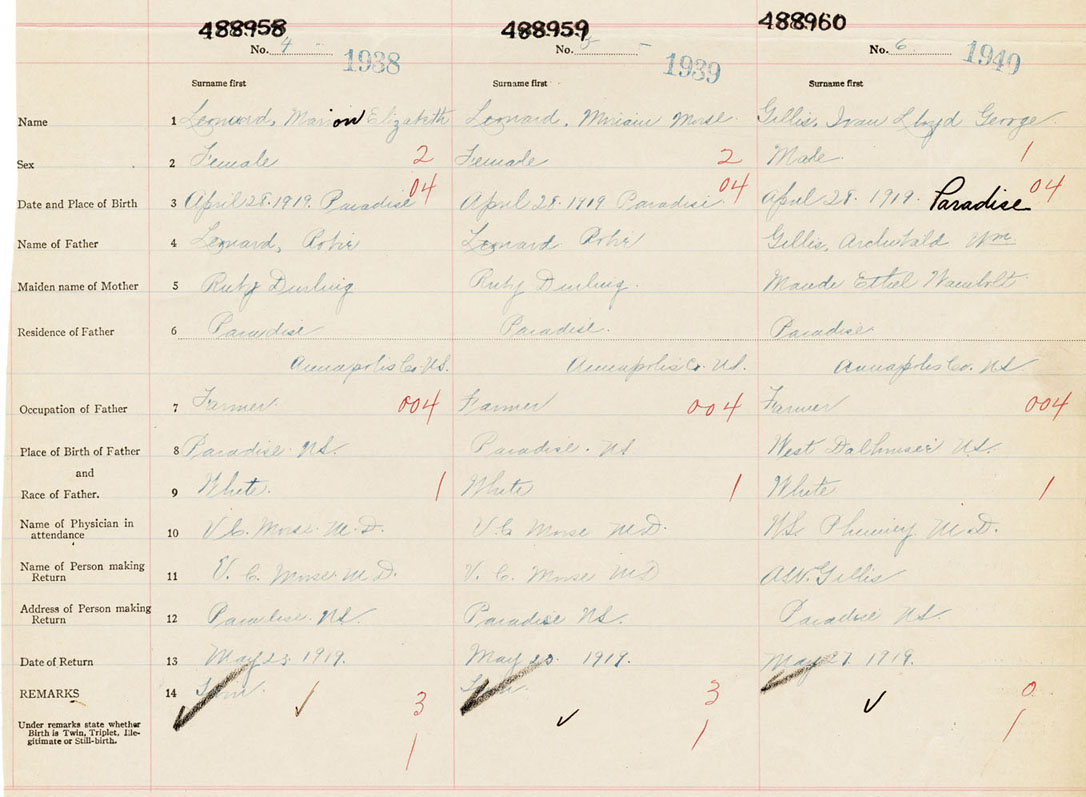 488958 488959 488960
No. 4 No. 5 No. 6
1938 1939 1940
Surname first Surname first Surname first
Name 1 Leonard, Marion Elizabeth Leonard, Miriam Morse Gillis, Ivan Lloyd George
Sex 2 Female 2 Female 2 Male 1
Date and Place of Birth 3 April 28. 1919. Paradise 04 April 28. 1919 Paradise 04 April 28. 1919. Paradise 04
Name of Father 4 Leonard, Leonard Gillis, Archibald Wm
Maiden name of Mother 5 Ruby Durling Ruby Durling. Maude Ethel
Residence of Father 6 Paradise Paradise. Paradise
Annapolis Co. N.S. Annapolis Co. N.S. Annapolis Co. N.S
Occupation of Father 7 Farmer 004 Farmer 004 Farmer 004
Place of Birth of Father 8 Paradise. N.S. Paradise. N.S West Dalhousie N.S.
and
Race of Father. 9 White. 1 White 1 White 1
Name of Physician in
attendance 10 V. C. Morse. M.D. V C Morse M.D. Phinney M.D.
Name of Person making
Return 11 V. C. Morse M.D. V. C. Morse MD A.W. Gillis
Address of Person making
Return 12 Paradise. N.S. Paradise N.S. Paradise N.S.
Date of Return 13 May 23 1919. May 1919. May 27. 1919.
REMARKS 14 3 3 0
Under remarks state whether
Birth is Twin, Triplet, Ille-
gitimate or Still-birth. 1 1 1